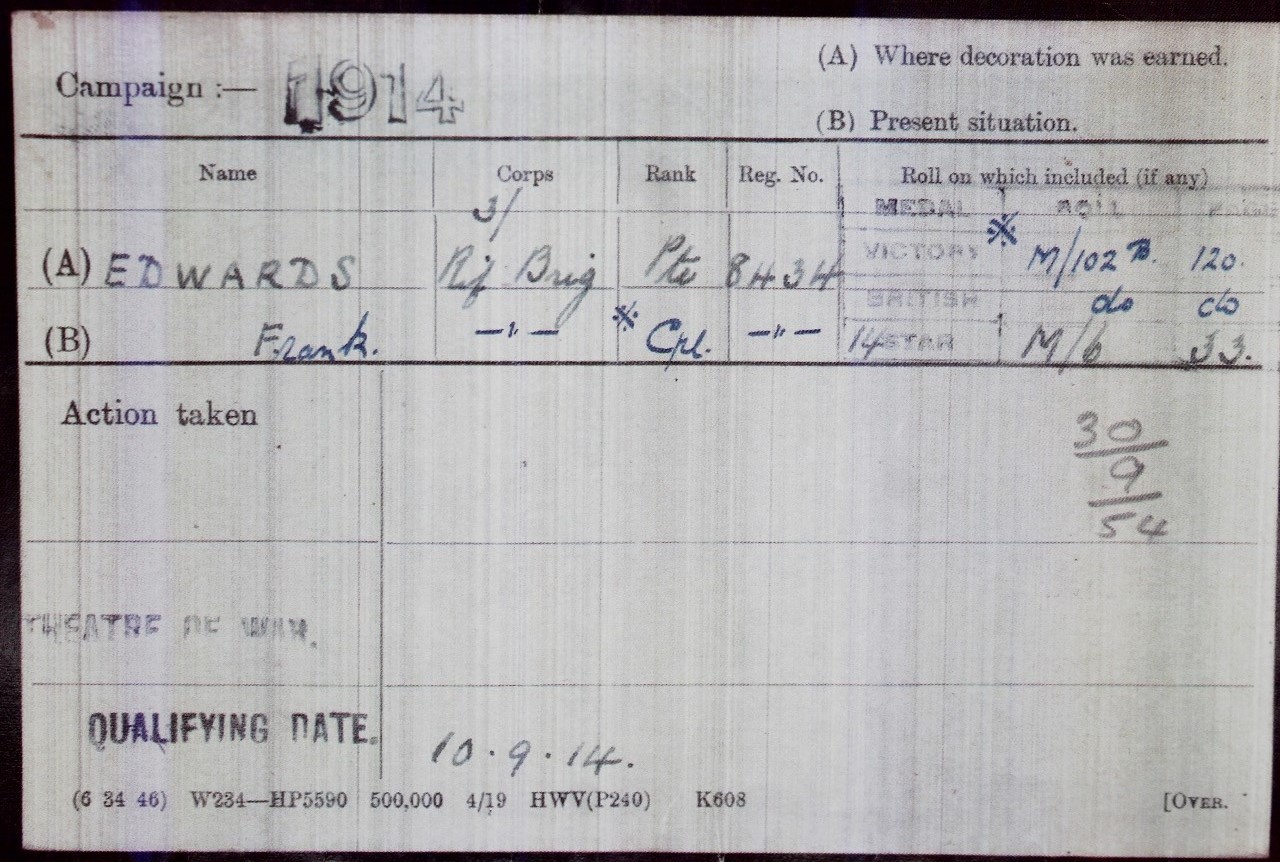 Campaign :— 1914
(A) Where decoration was earned.
(B) Present situation.
Name Corps Rank Reg. No. Roll on which included (if any)
3/ MEDAL ROLL PAGE
(A) EDWARDS Rif Brig Pte 8434 VICTORY ※ M/102 B. 120.
BRITISH do do
(B) Frank. —"— ※ Cpl. —"— 14 STAR M/6 33.
Action taken
30/9/54
THEATRE OF WAR.
QUALIFYING DATE. 10.9.14.
(6 34 46) W234—HP5590 500,000 4/19 HWV(P240) K608 [OVER.